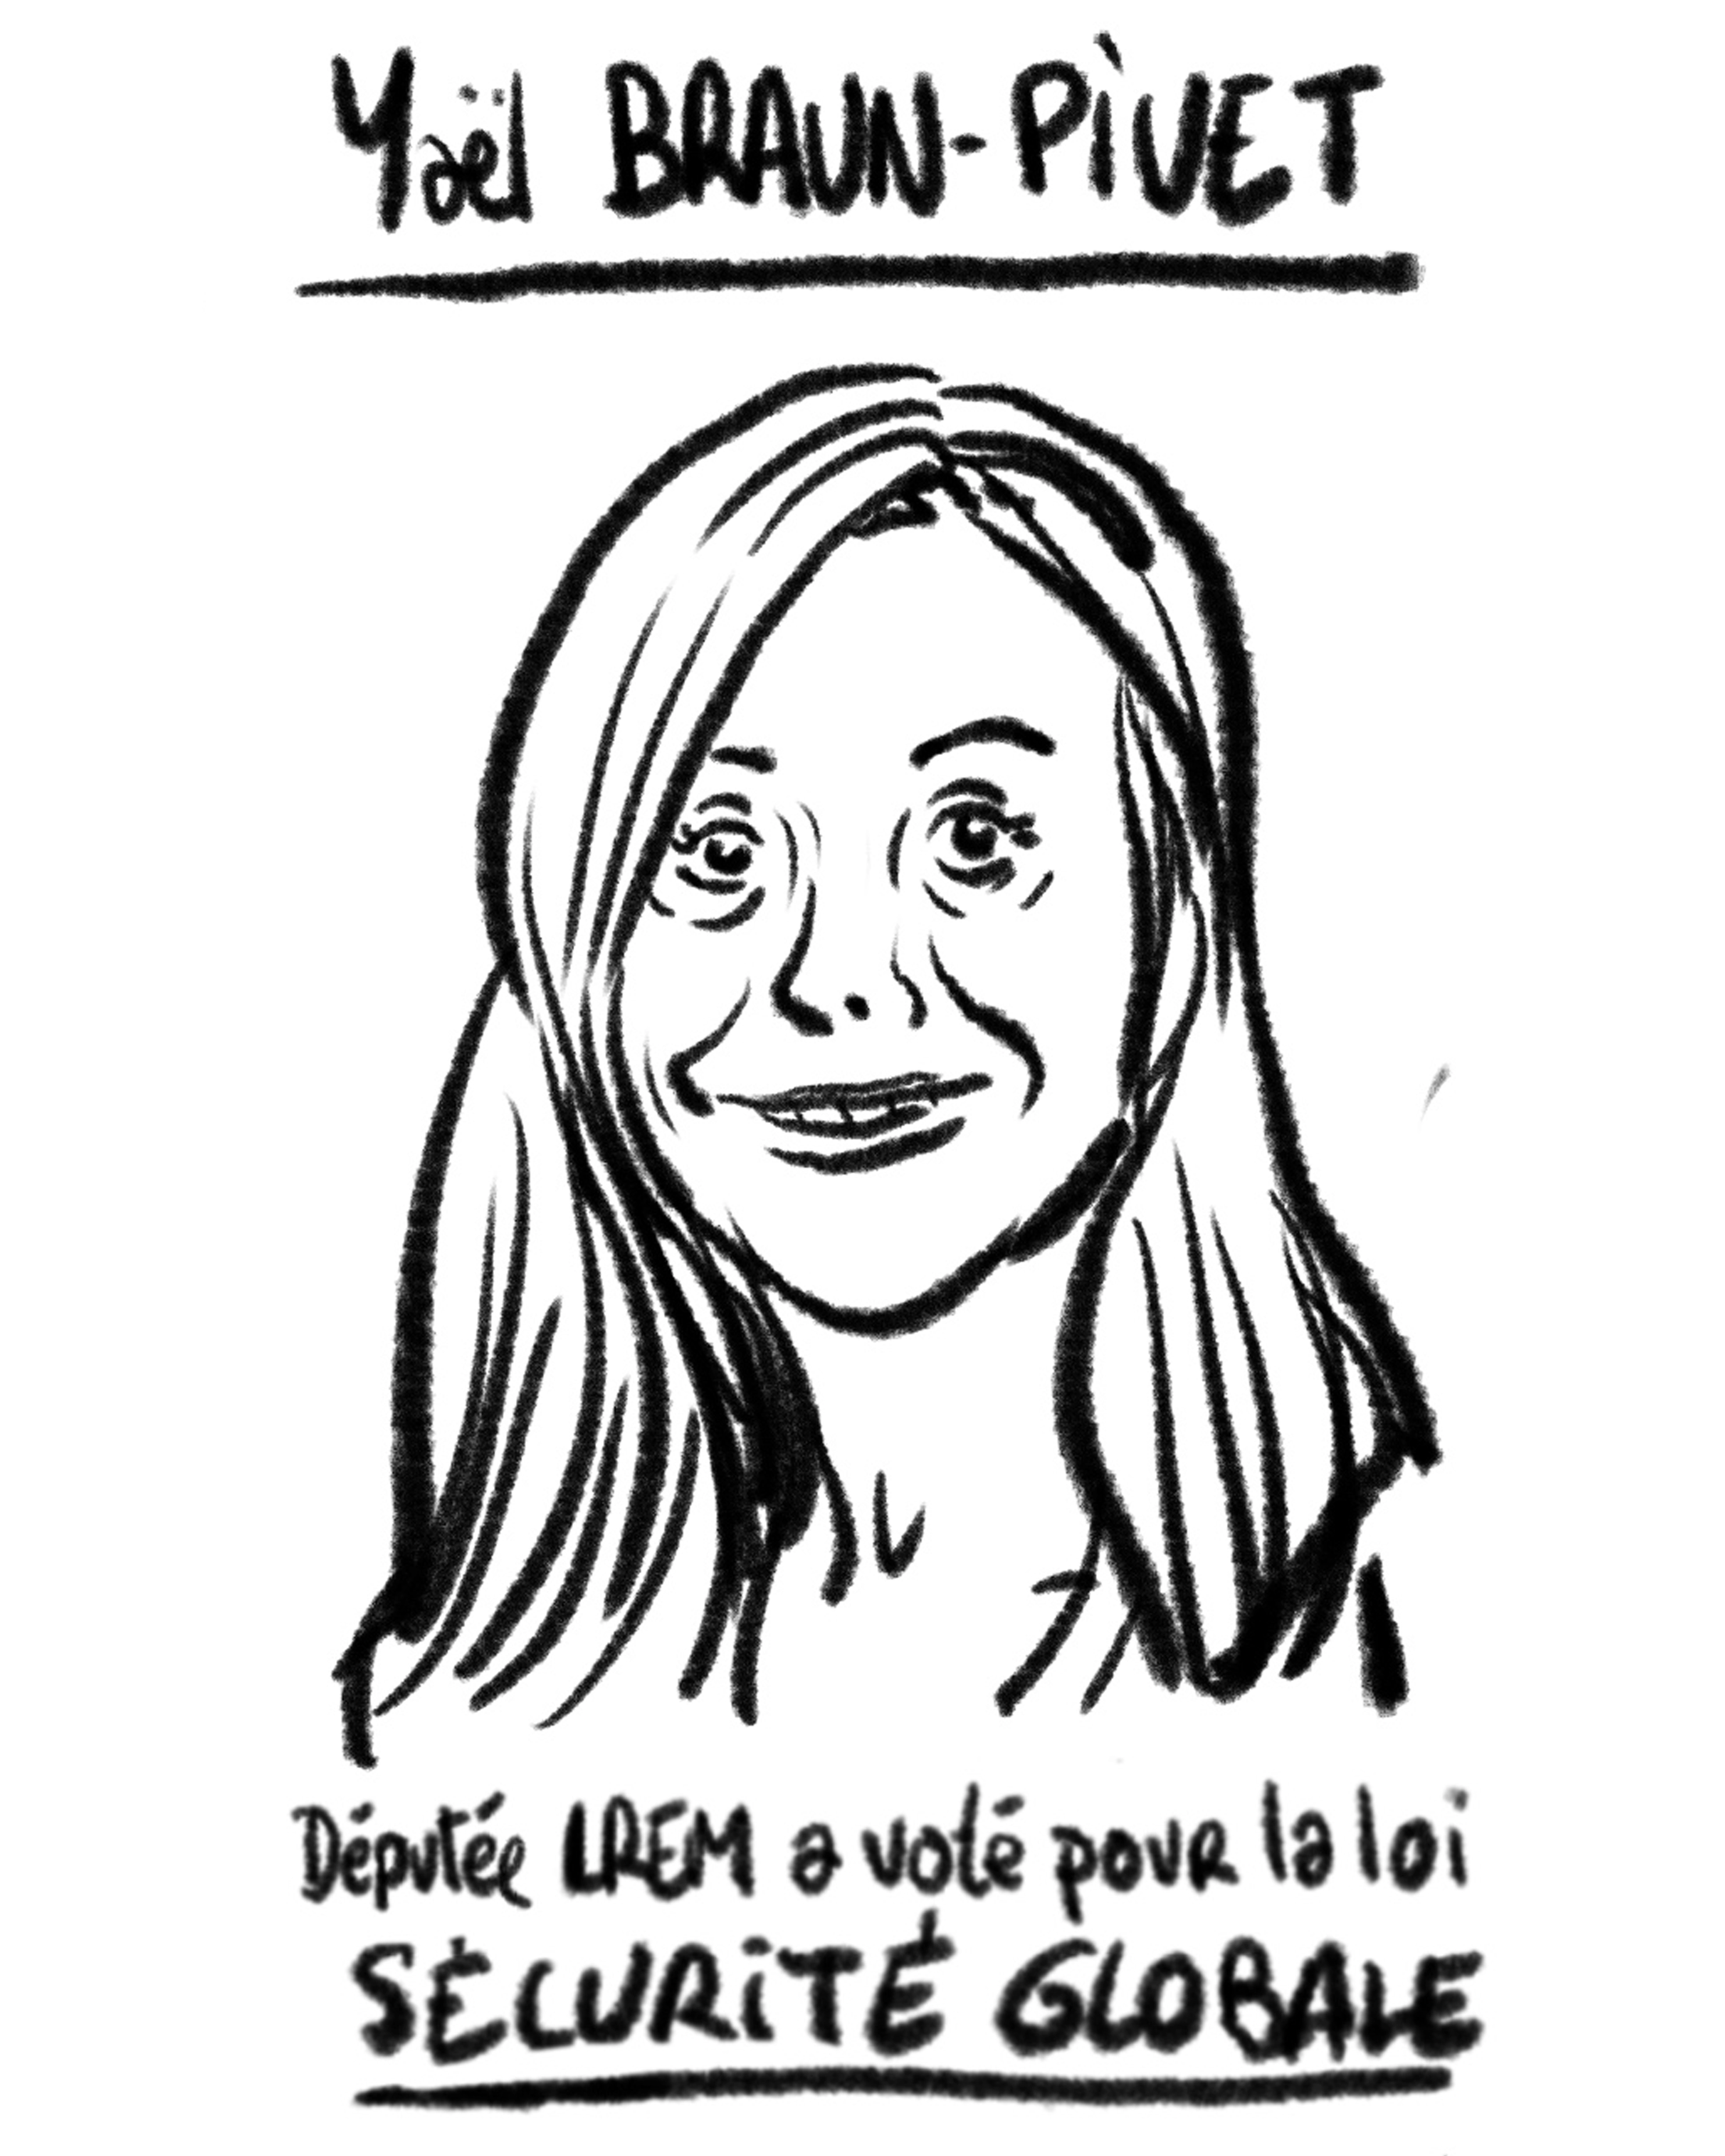 Yaël BRAUN-PiVET
Députée LREM a voté pour la loi
SÉCURiTÉ GLOBALE